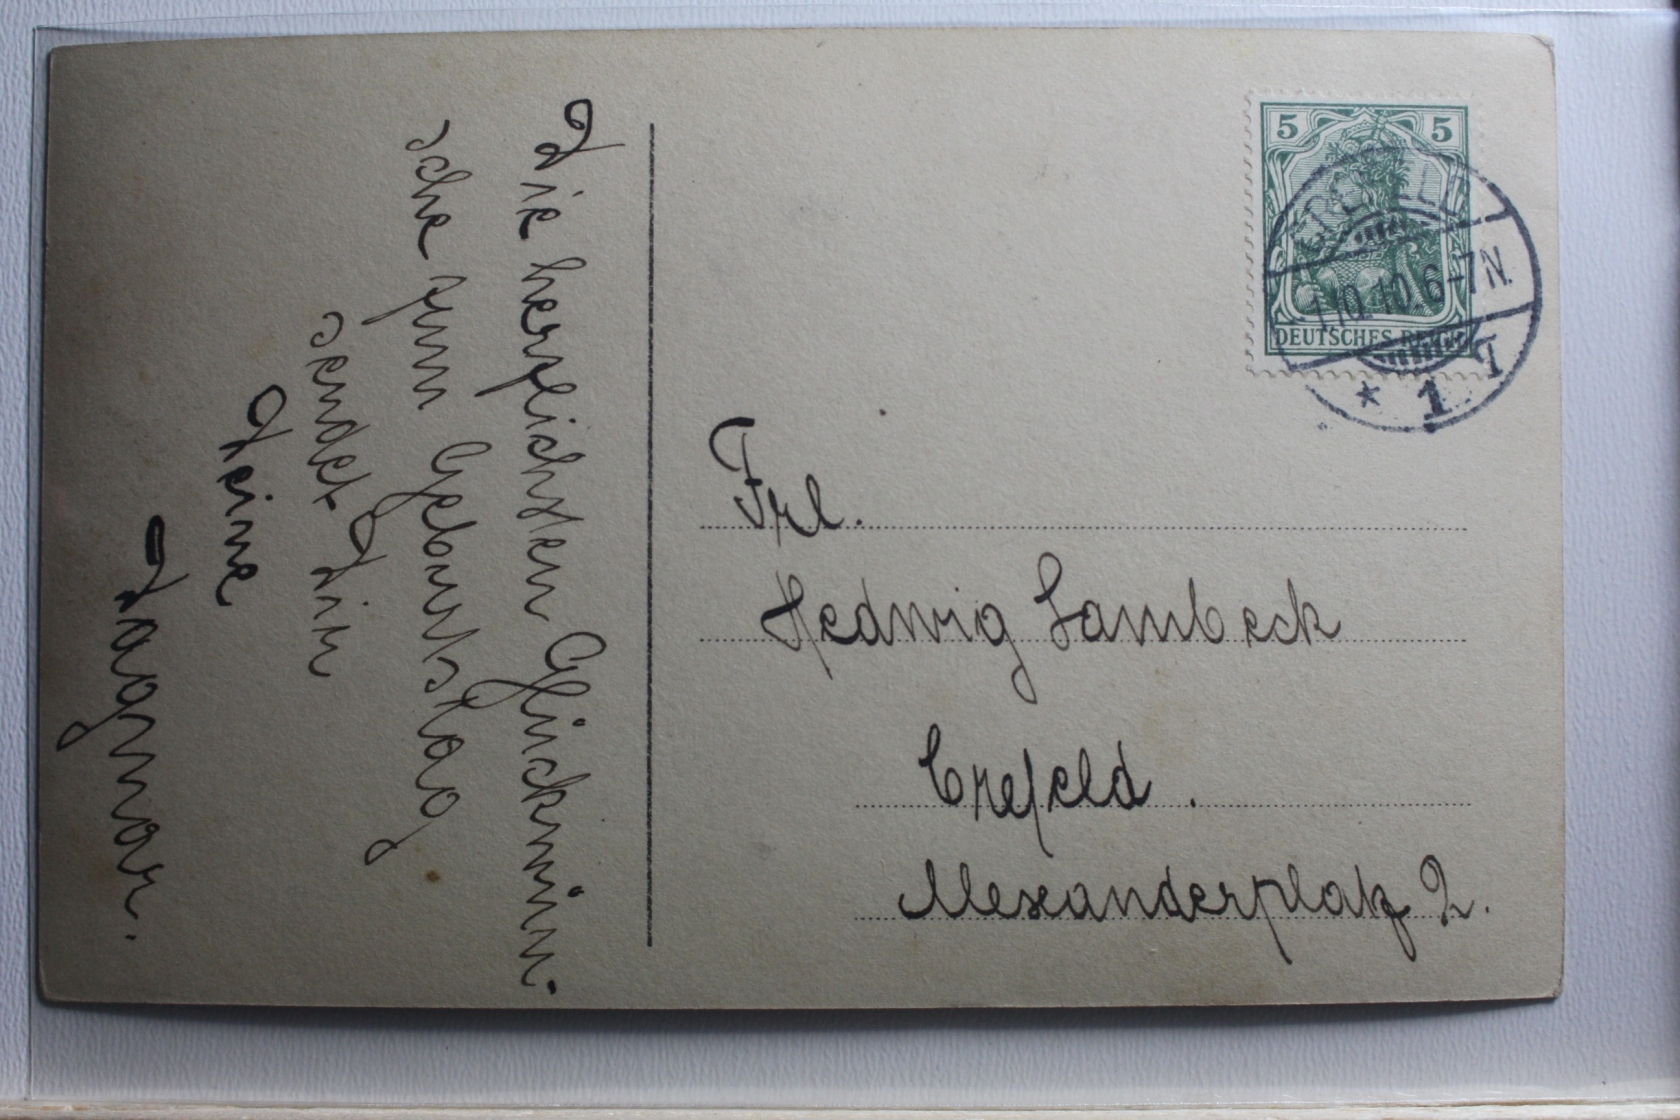 Die herzlichsten Glückwün-
sche zum Geburtstag
sendet Dir
Deine
Dagmar.
5 5
DEUTSCHES REICH
1.10.10.6-7N.
* 1
Frl.
Hedwig Lambeck
Crefeld.
Alexanderplatz 2.